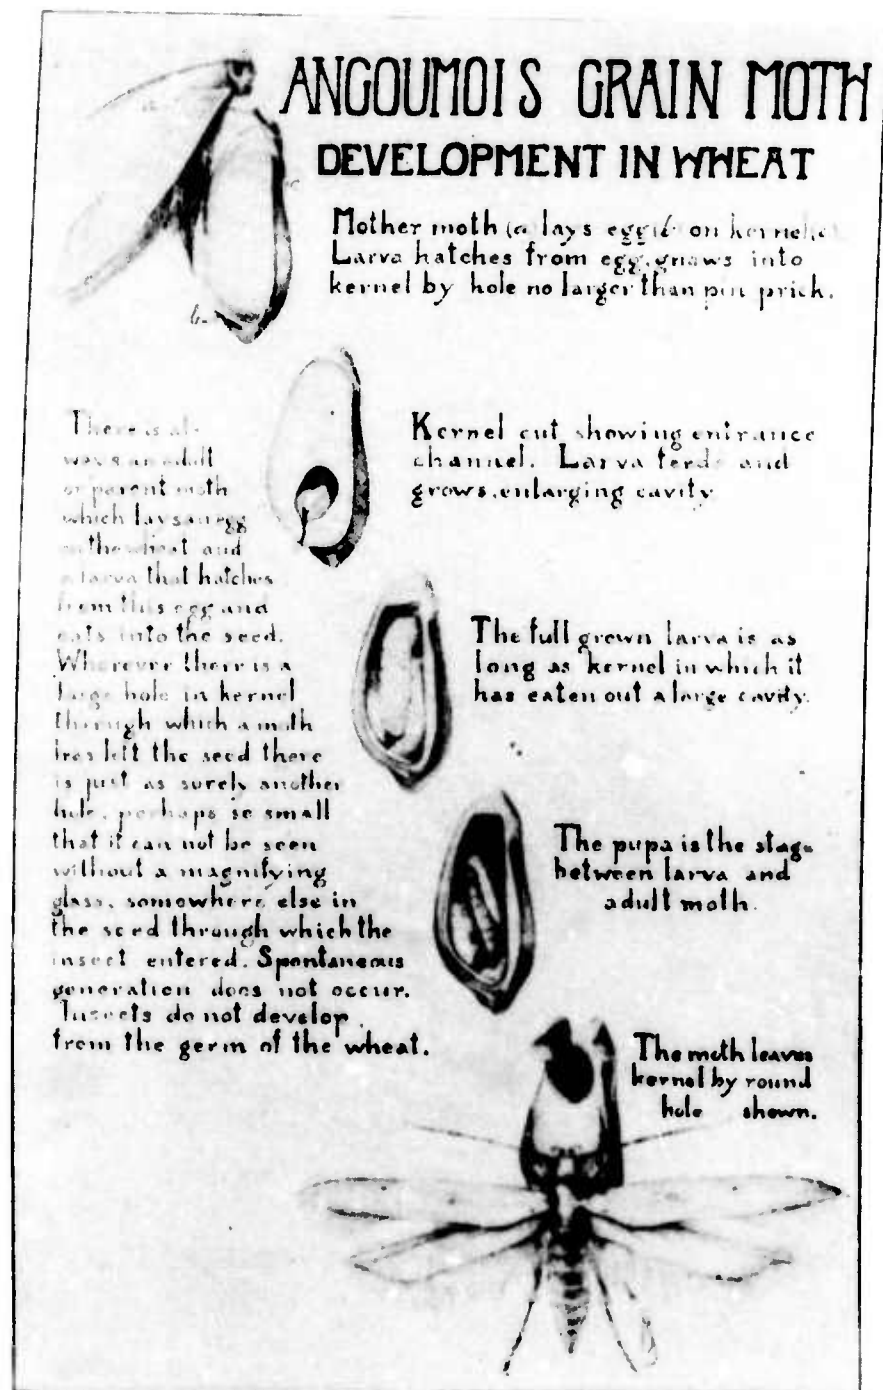 ANGOUMOIS GRAIN MOTH
DEVELOPMENT IN WHEAT
Mother moth (a lays egg b on kernel c
Larva hatches from egg, gnaws into
kernel by hole no larger than pin prick.
b
c
Kernel cut showing entrance
channel. Larva feeds and
grows, enlarging cavity
The full grown larva is as
long as kernel in which it
has eaten out a large cavity.
The pupa is the stage
between larva and
adult moth.
The moth leaves
kernel by round
hole shown.
There is al-
ways an adult
or parent moth
which lays an egg
on the wheat and
a larva that hatches
from this egg and
eats into the seed.
Wherever there is a
large hole in kernel
through which a moth
has left the seed there
is just as surely another
hole, perhaps so small
that it can not be seen
without a magnifying
glass, somewhere else in
the seed through which the
insect entered. Spontaneous
generation does not occur.
Insects do not develop
from the germ of the wheat.